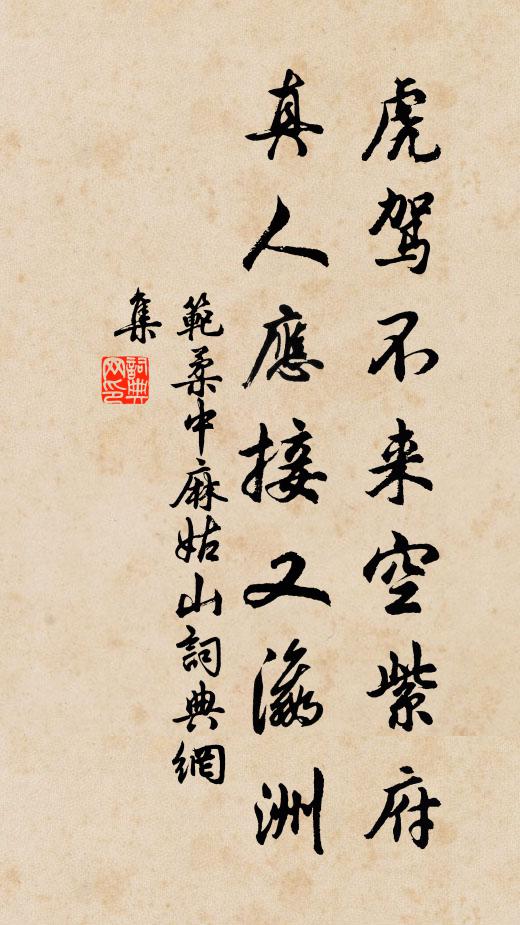 虎驾不来空紫府
真人應接又瀛洲
範柔中麻姑山詞典網
集
詞典网印